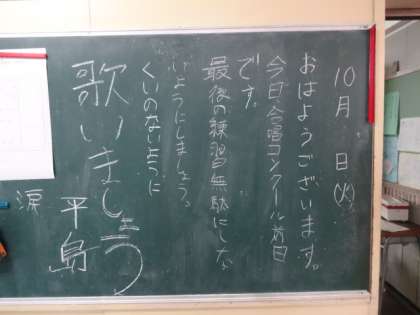 10月 日(火)
おはようございます。
今日、合唱コンクール前日
です。
最後の練習無駄にしな
いようにしましょう。
くいのないように
歌いましょう
平島
涙